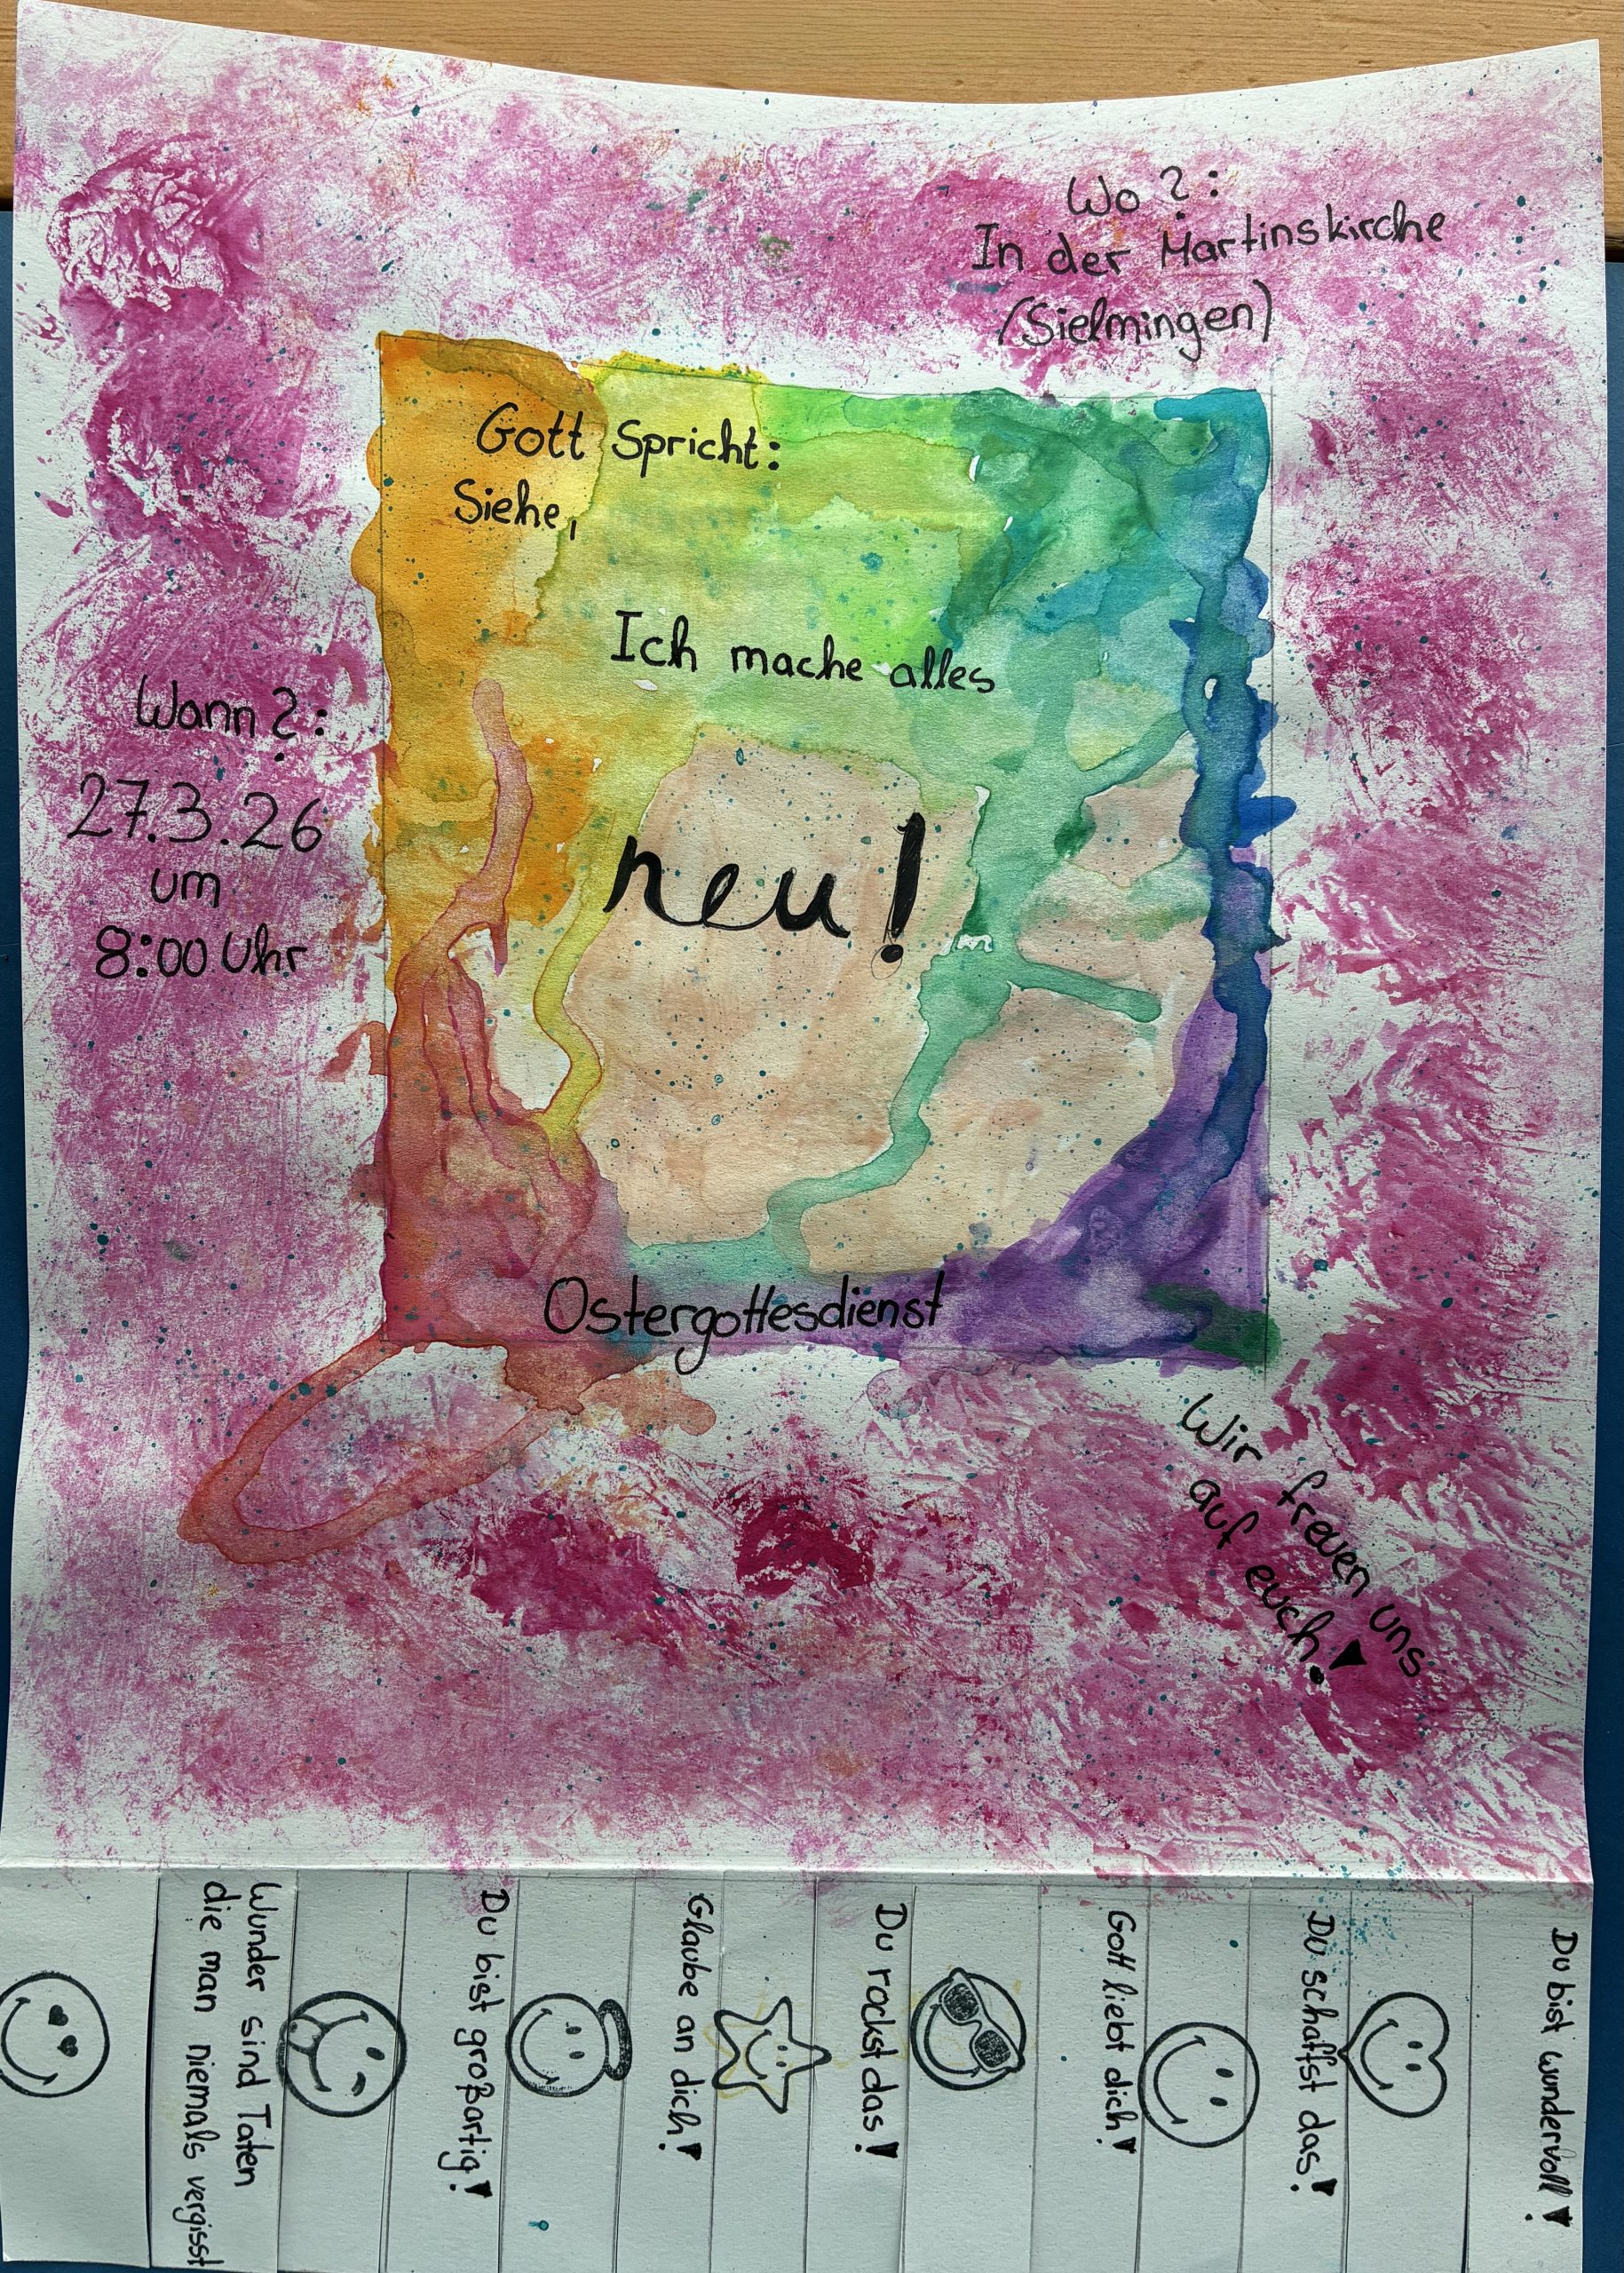 Wo?:
In der Martinskirche
(Sielmingen)
Gott spricht:
Siehe,
Ich mache alles
neu!
Wann?:
27.3.26
um
8:00 Uhr
Ostergottesdienst
Wir freuen uns
auf euch!
Du bist wundervoll!
Du schaffst das!
Gott liebt dich!
Du rockst das!
Glaube an dich!
Du bist großartig!
Wunder sind Taten
die man niemals vergisst